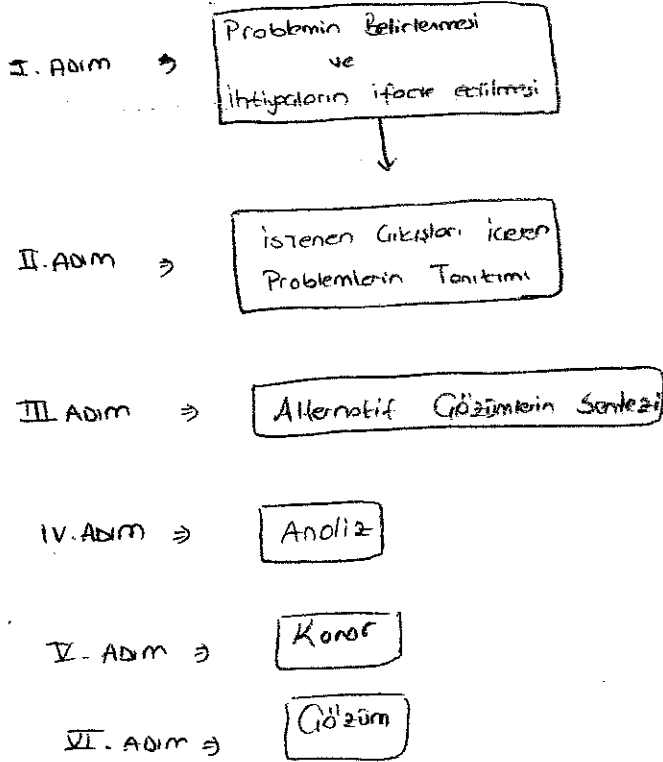 I. ADIM ⇒ Problemin Belirlenmesi
ve
İhtiyaçların ifade edilmesi
II. ADIM ⇒ İstenen Çıkışları içeren
Problemlerin Tanıtımı
III. ADIM ⇒ Alternatif Çözümlerin Sentezi
IV. ADIM ⇒ Analiz
V. ADIM ⇒ Karar
VI. ADIM ⇒ Çözüm